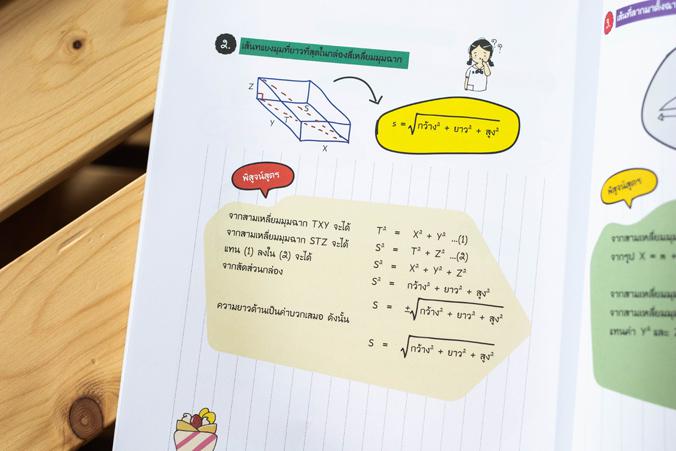 2. เส้นทแยงมุมที่ยาวที่สุดในกล่องสี่เหลี่ยมมุมฉาก
? ?
Z
S
Y
T
X
s = √กว้าง² + ยาว² + สูง²
พิสูจน์สูตร
จากสามเหลี่ยมมุมฉาก TXY จะได้ T² = X² + Y² ...(1)
จากสามเหลี่ยมมุมฉาก STZ จะได้ S² = T² + Z² ...(2)
แทน (1) ลงใน (2) จะได้ S² = X² + Y² + Z²
จากสัดส่วนกล่อง S² = กว้าง² + ยาว² + สูง²
S = ±√กว้าง² + ยาว² + สูง²
ความยาวด้านเป็นค่าบวกเสมอ ดังนั้น S = √กว้าง² + ยาว² + สูง²
3. เส้นที่ลากมาตั้งฉาก
พิสูจน์สูตร
จากสามเหลี่ยมมุม
จากรูป X = m +
จากสามเหลี่ยมมุม
จากสามเหลี่ยมมุม
แทนค่า Y² และ